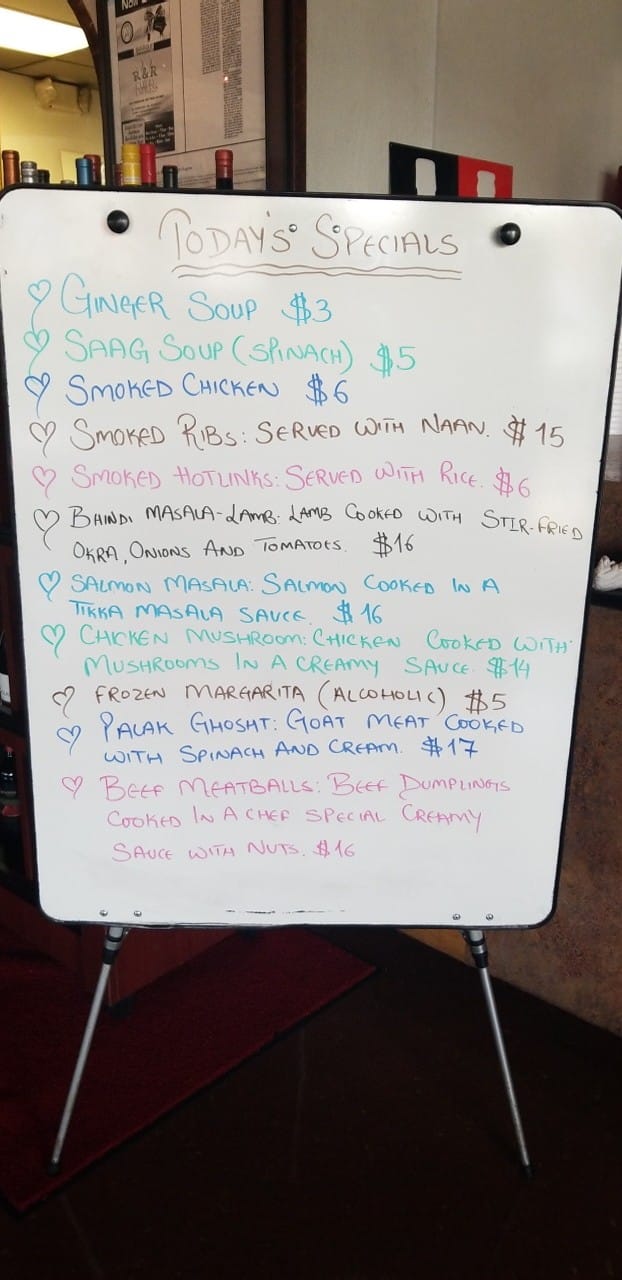 R&R
TODAY'S SPECIALS
GINGER SOUP $3
SAAG SOUP (SPINACH) $5
SMOKED CHICKEN $6
SMOKED RIBS: SERVED WITH NAAN. $15
SMOKED HOTLINKS: SERVED WITH RICE. $6
BHINDI MASALA-LAMB: LAMB COOKED WITH STIR-FRIED
OKRA, ONIONS AND TOMATOES. $16
SALMON MASALA: SALMON COOKED IN A
TIKKA MASALA SAUCE. $16
CHICKEN MUSHROOM: CHICKEN COOKED WITH
MUSHROOMS IN A CREAMY SAUCE. $14
FROZEN MARGARITA (ALCOHOLIC) $5
PALAK GHOSHT: GOAT MEAT COOKED
WITH SPINACH AND CREAM. $17
BEEF MEATBALLS: BEEF DUMPLINGS
COOKED IN A CHEF SPECIAL CREAMY
SAUCE WITH NUTS. $16